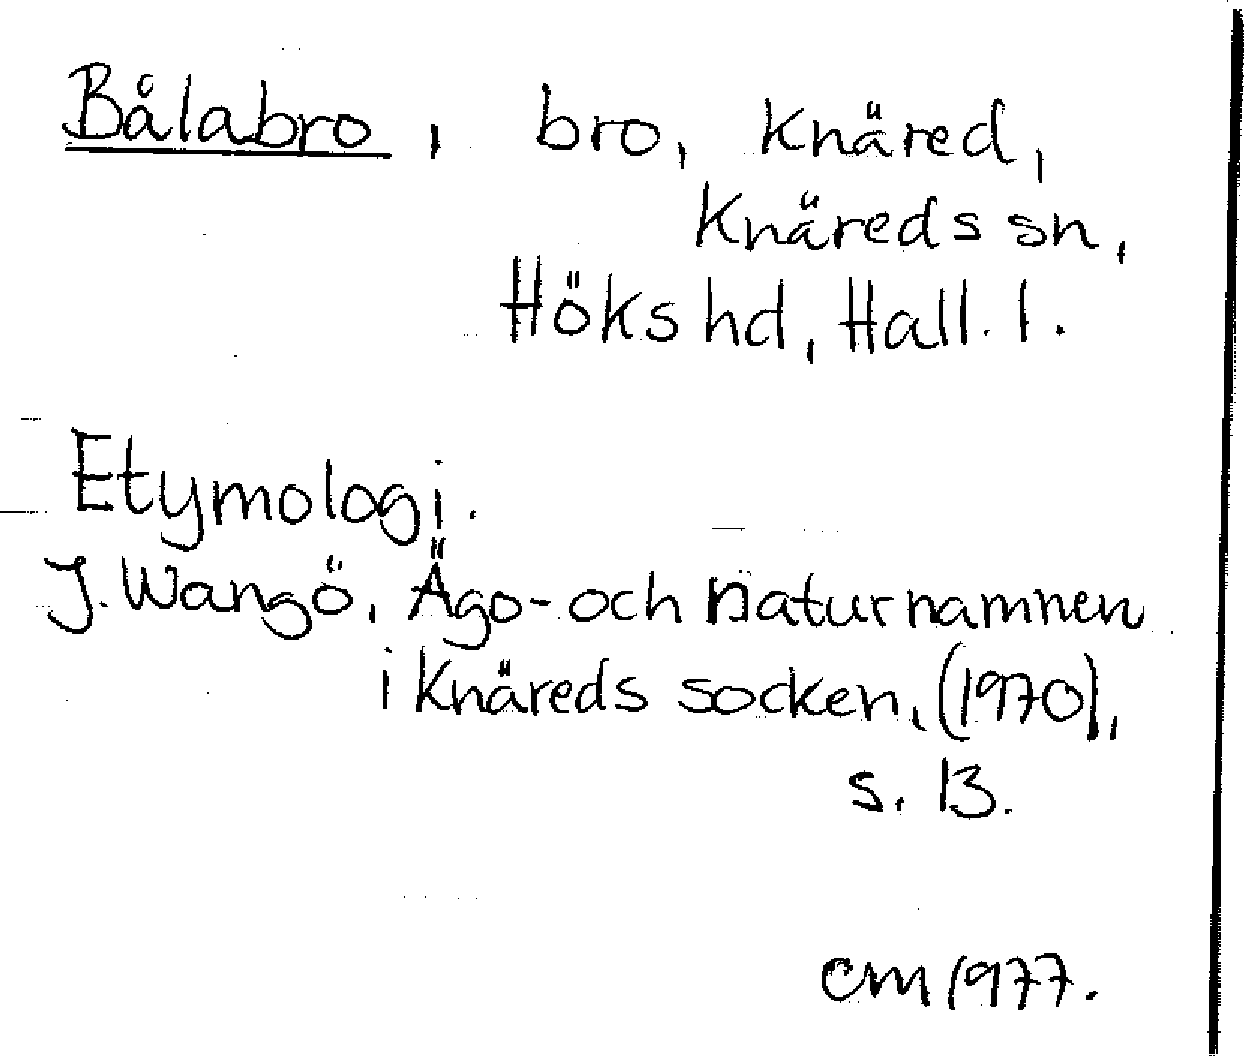 Bålabro, bro, Knäred,
Knäreds sn,
Höks hd, Hall. l.
Etymologi.
J. Wangö, Ägo- och naturnamnen
i Knäreds socken, (1970),
s. 13.
CM 1977.